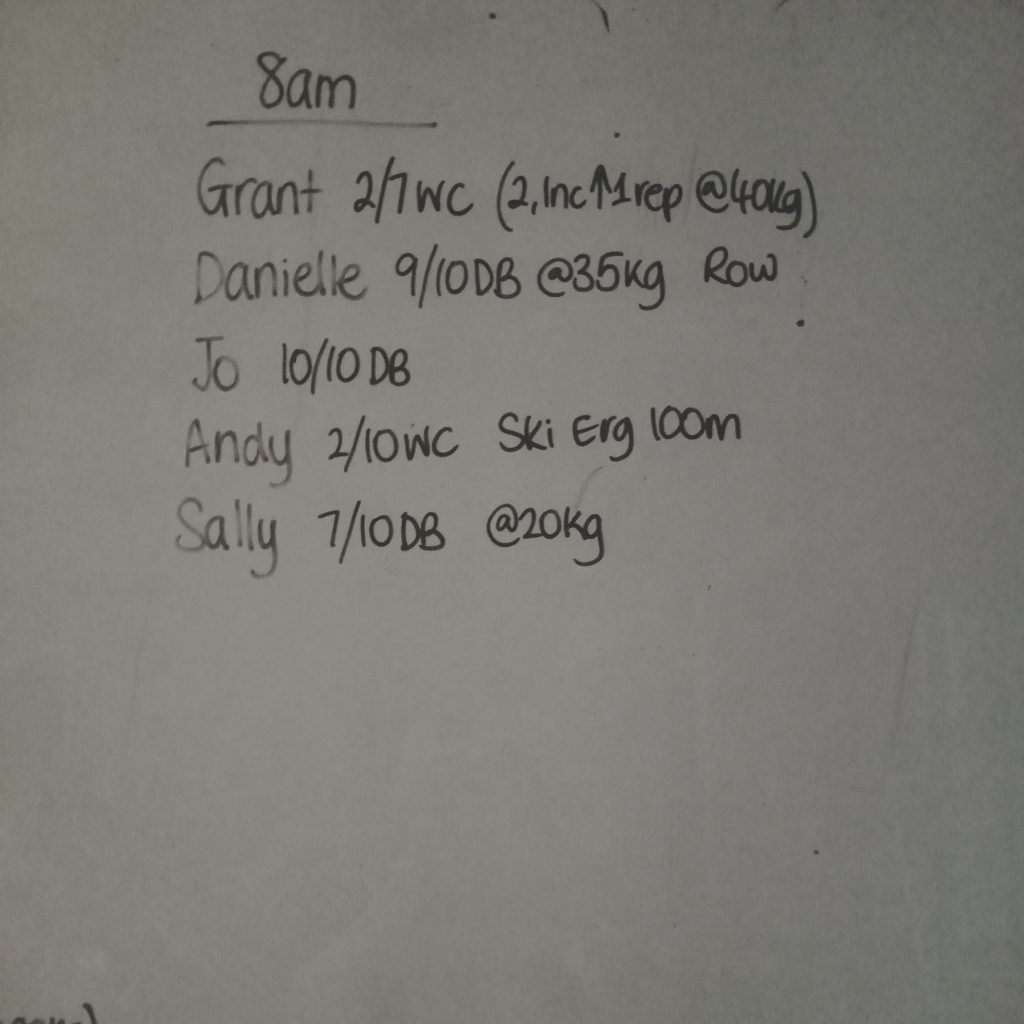 8am
Grant 2/7WC (2,Inc↑1rep @40kg)
Danielle 9/10DB @35kg Row
Jo 10/10DB
Andy 2/10WC Ski Erg 100m
Sally 7/10DB @20kg